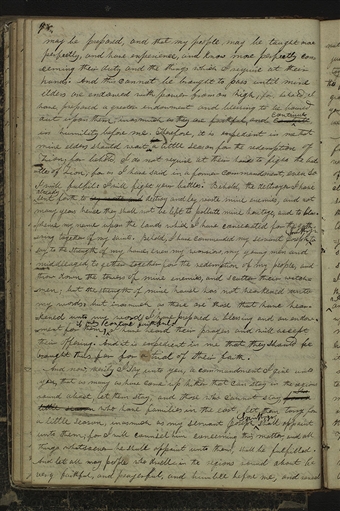 98.
may be prepared, and that my people, may be taught more
perfectly, and have experience, and know more perfectly con
cerning their duty and the things which I require at their
hands. And this cannot be brought to pass until mine
elders are endowed with power from on high, for, behold, I
have prepared a greater endowment and blessing to be poured
out upon them, inasmuch as they are faithful, and continue
in humility before me. Therefore, it is expedient in me that
mine elders should wait a little season for the redemption of
Zion, for behold I do not require at their hands to fight the bat
tles of Zion; for as I have said in a former commandment, even so
I will fulfil I will fight your battles. Behold, the destroyer I have
sent forth to destroy and lay waste mine enemies, and not
many years hence they shall not be left to pollute mine heritage, and to blas
pheme my name upon the lands which I have consecrated for the gath
ering together of my saints. Behold, I have commanded my servant Joseph to
say to the strength of my house even my warriors, my young men and
middle aged, to gather together for the redemption of my people, and
throw down the towers of mine enemies, and scatter their watch
men; but the strength of mine house has not hearkened unto
my words; but inasmuch as there are those that have hear
kened unto my words I have prepared a blessing and an endow
ment for them, if they continue faithful. I have heard their prayers and will accept
their offering. And it is expedient in me that they should be
brought thus far for a trial of their faith.
And now verily I say unto you, a commandment I give unto
you, that as many as have come up hither that can stay in the region
round about, let them stay, and those who cannot stay
who have families in the east, let them tarry for
a little season, inasmuch as my servant Joseph shall appoint
unto them, for I will counsel him concerning this matter, and all
things whatsoever he shall appoint unto them, shall be fulfilled.
And let all my people who dwell in the regions round about be
very faithful, and prayerful, and humble before me, and reveal